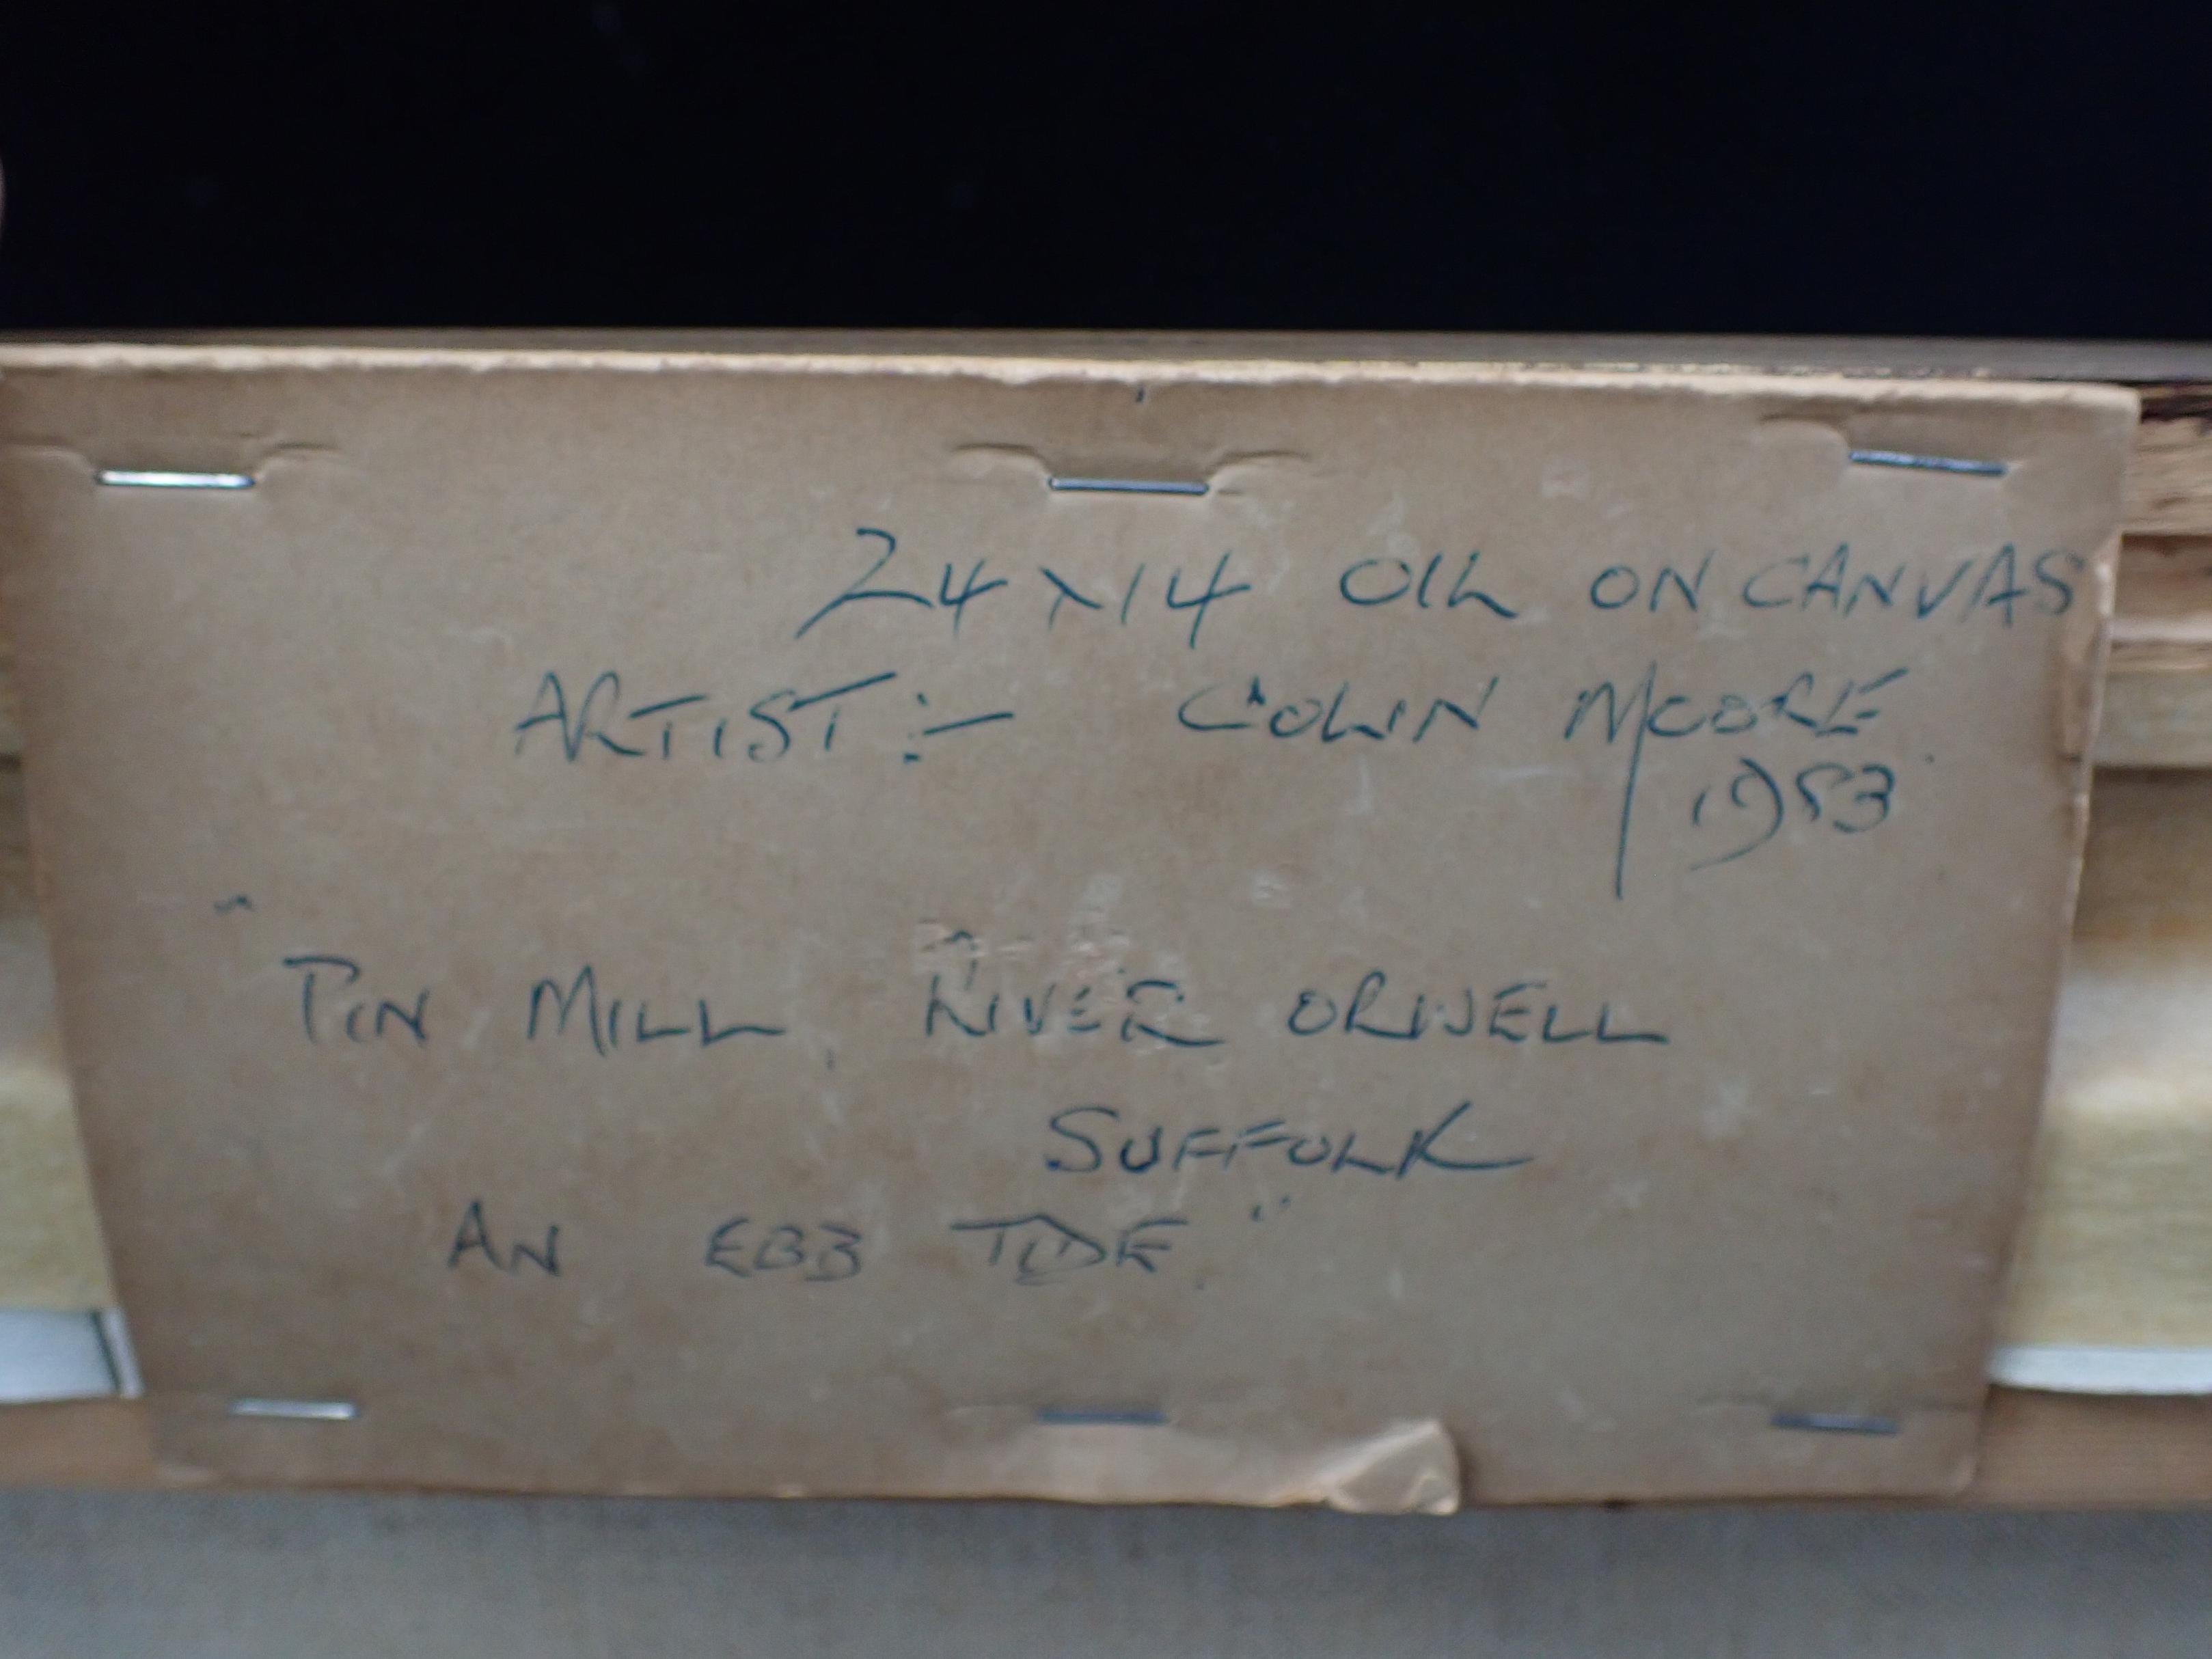 24 x 14 OIL ON CANVAS
ARTIST :- COLIN MOORE
1983
"PIN MILL, RIVER ORWELL
SUFFOLK
AN EBB TIDE."